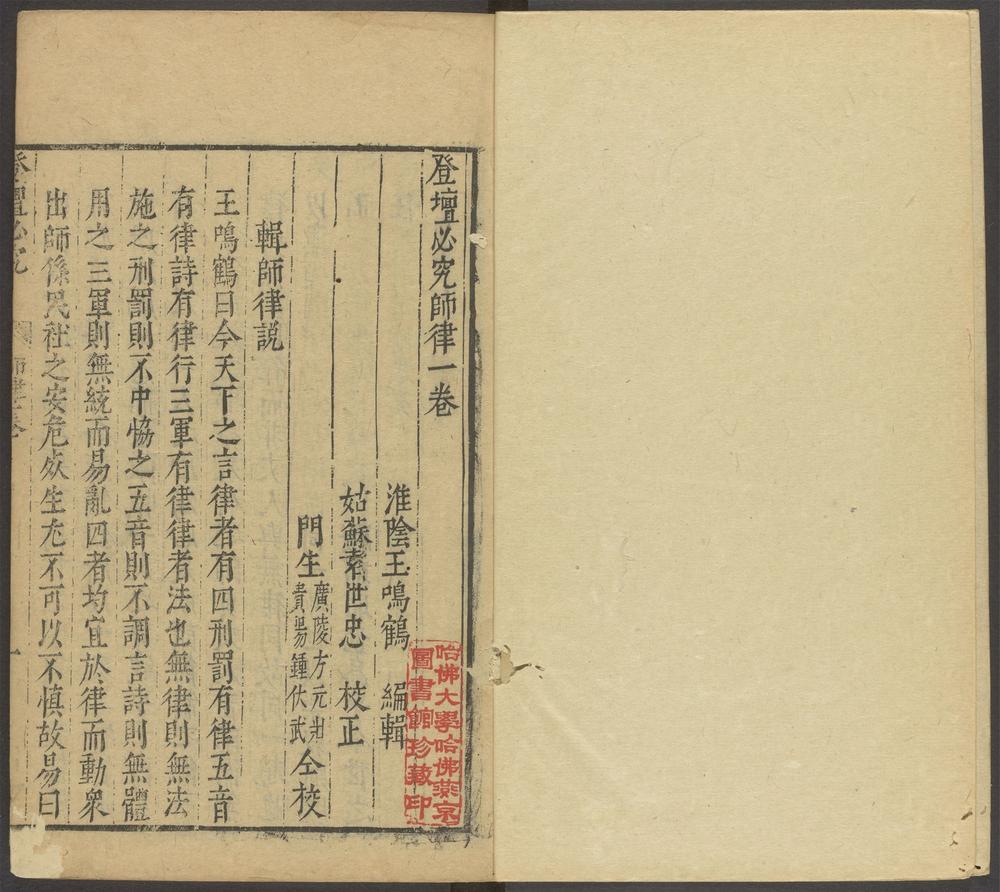 登壇必究師律一卷
淮陰王鳴鶴　編輯
姑蘇袁世忠　校正
門生廣陵方元壯
貴陽鍾伏武仝校
輯師律説
王鳴鶴曰今天下之言律者有四刑罰有律五音
有律詩有律行三軍有律律者法也無律則無法
施之刑罰則不中恊之五音則不調言詩則無體
用之三軍則無統而易亂四者均宜於律而動衆
出師係民社之安危𣦸生尤不可以不慎故易曰
登壇必究
師律一卷
一
哈佛大學哈佛燕京
圖書館珍藏印